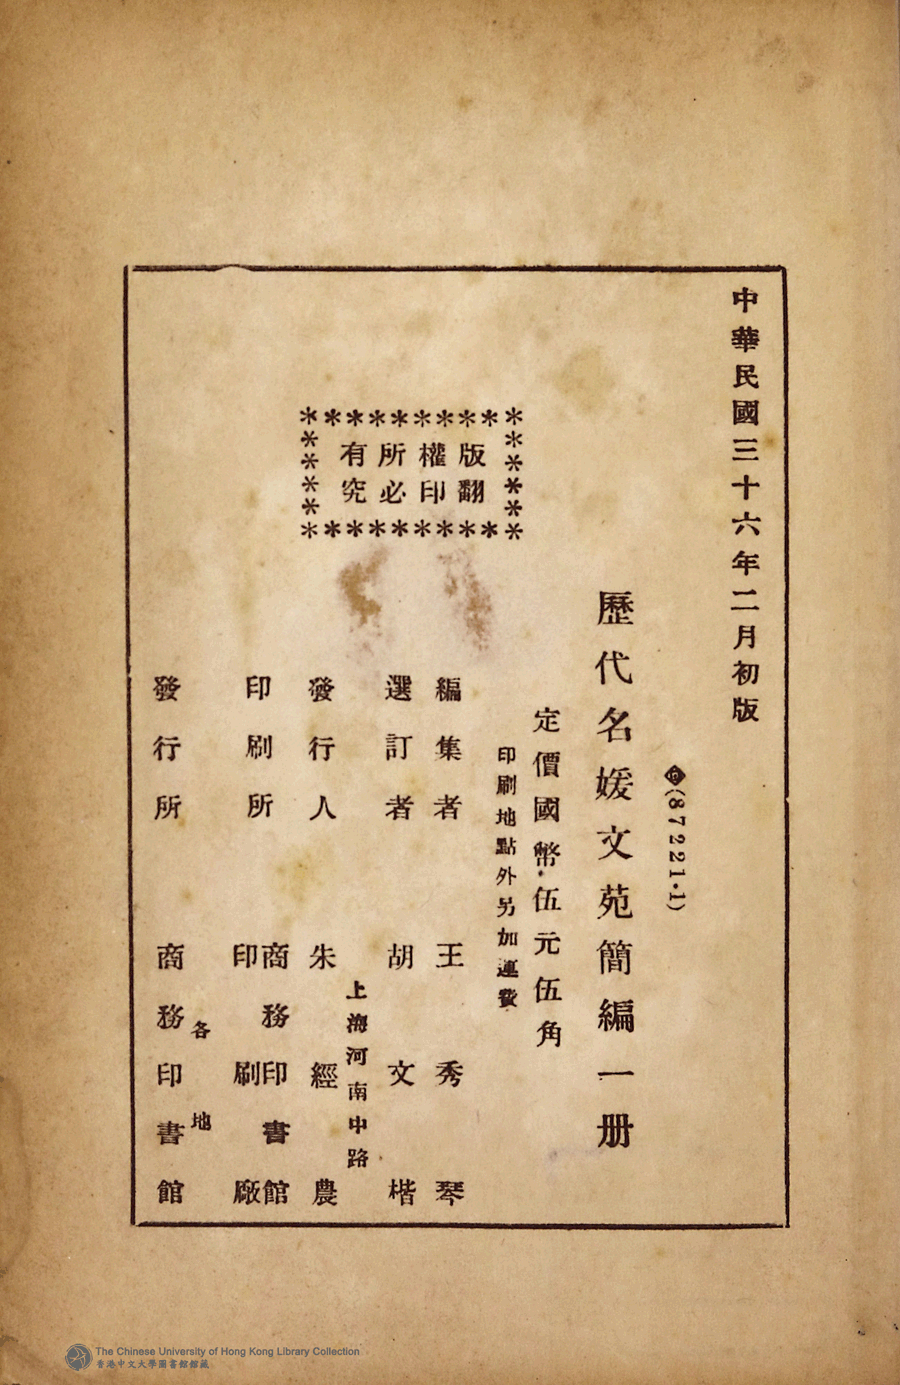 中華民國三十六年二月初版
(87221·1)
歷代名媛文苑簡編一册
定價國幣伍元伍角
印刷地點外另加運費
版權所有
翻印必究
編集者 王秀琴
選訂者 胡文楷
上海河南中路
發行人 朱經農
印刷所 商務印書館
印刷廠
各地
發行所 商務印書館
The Chinese University of Hong Kong Library Collection
香港中文大學圖書館館藏